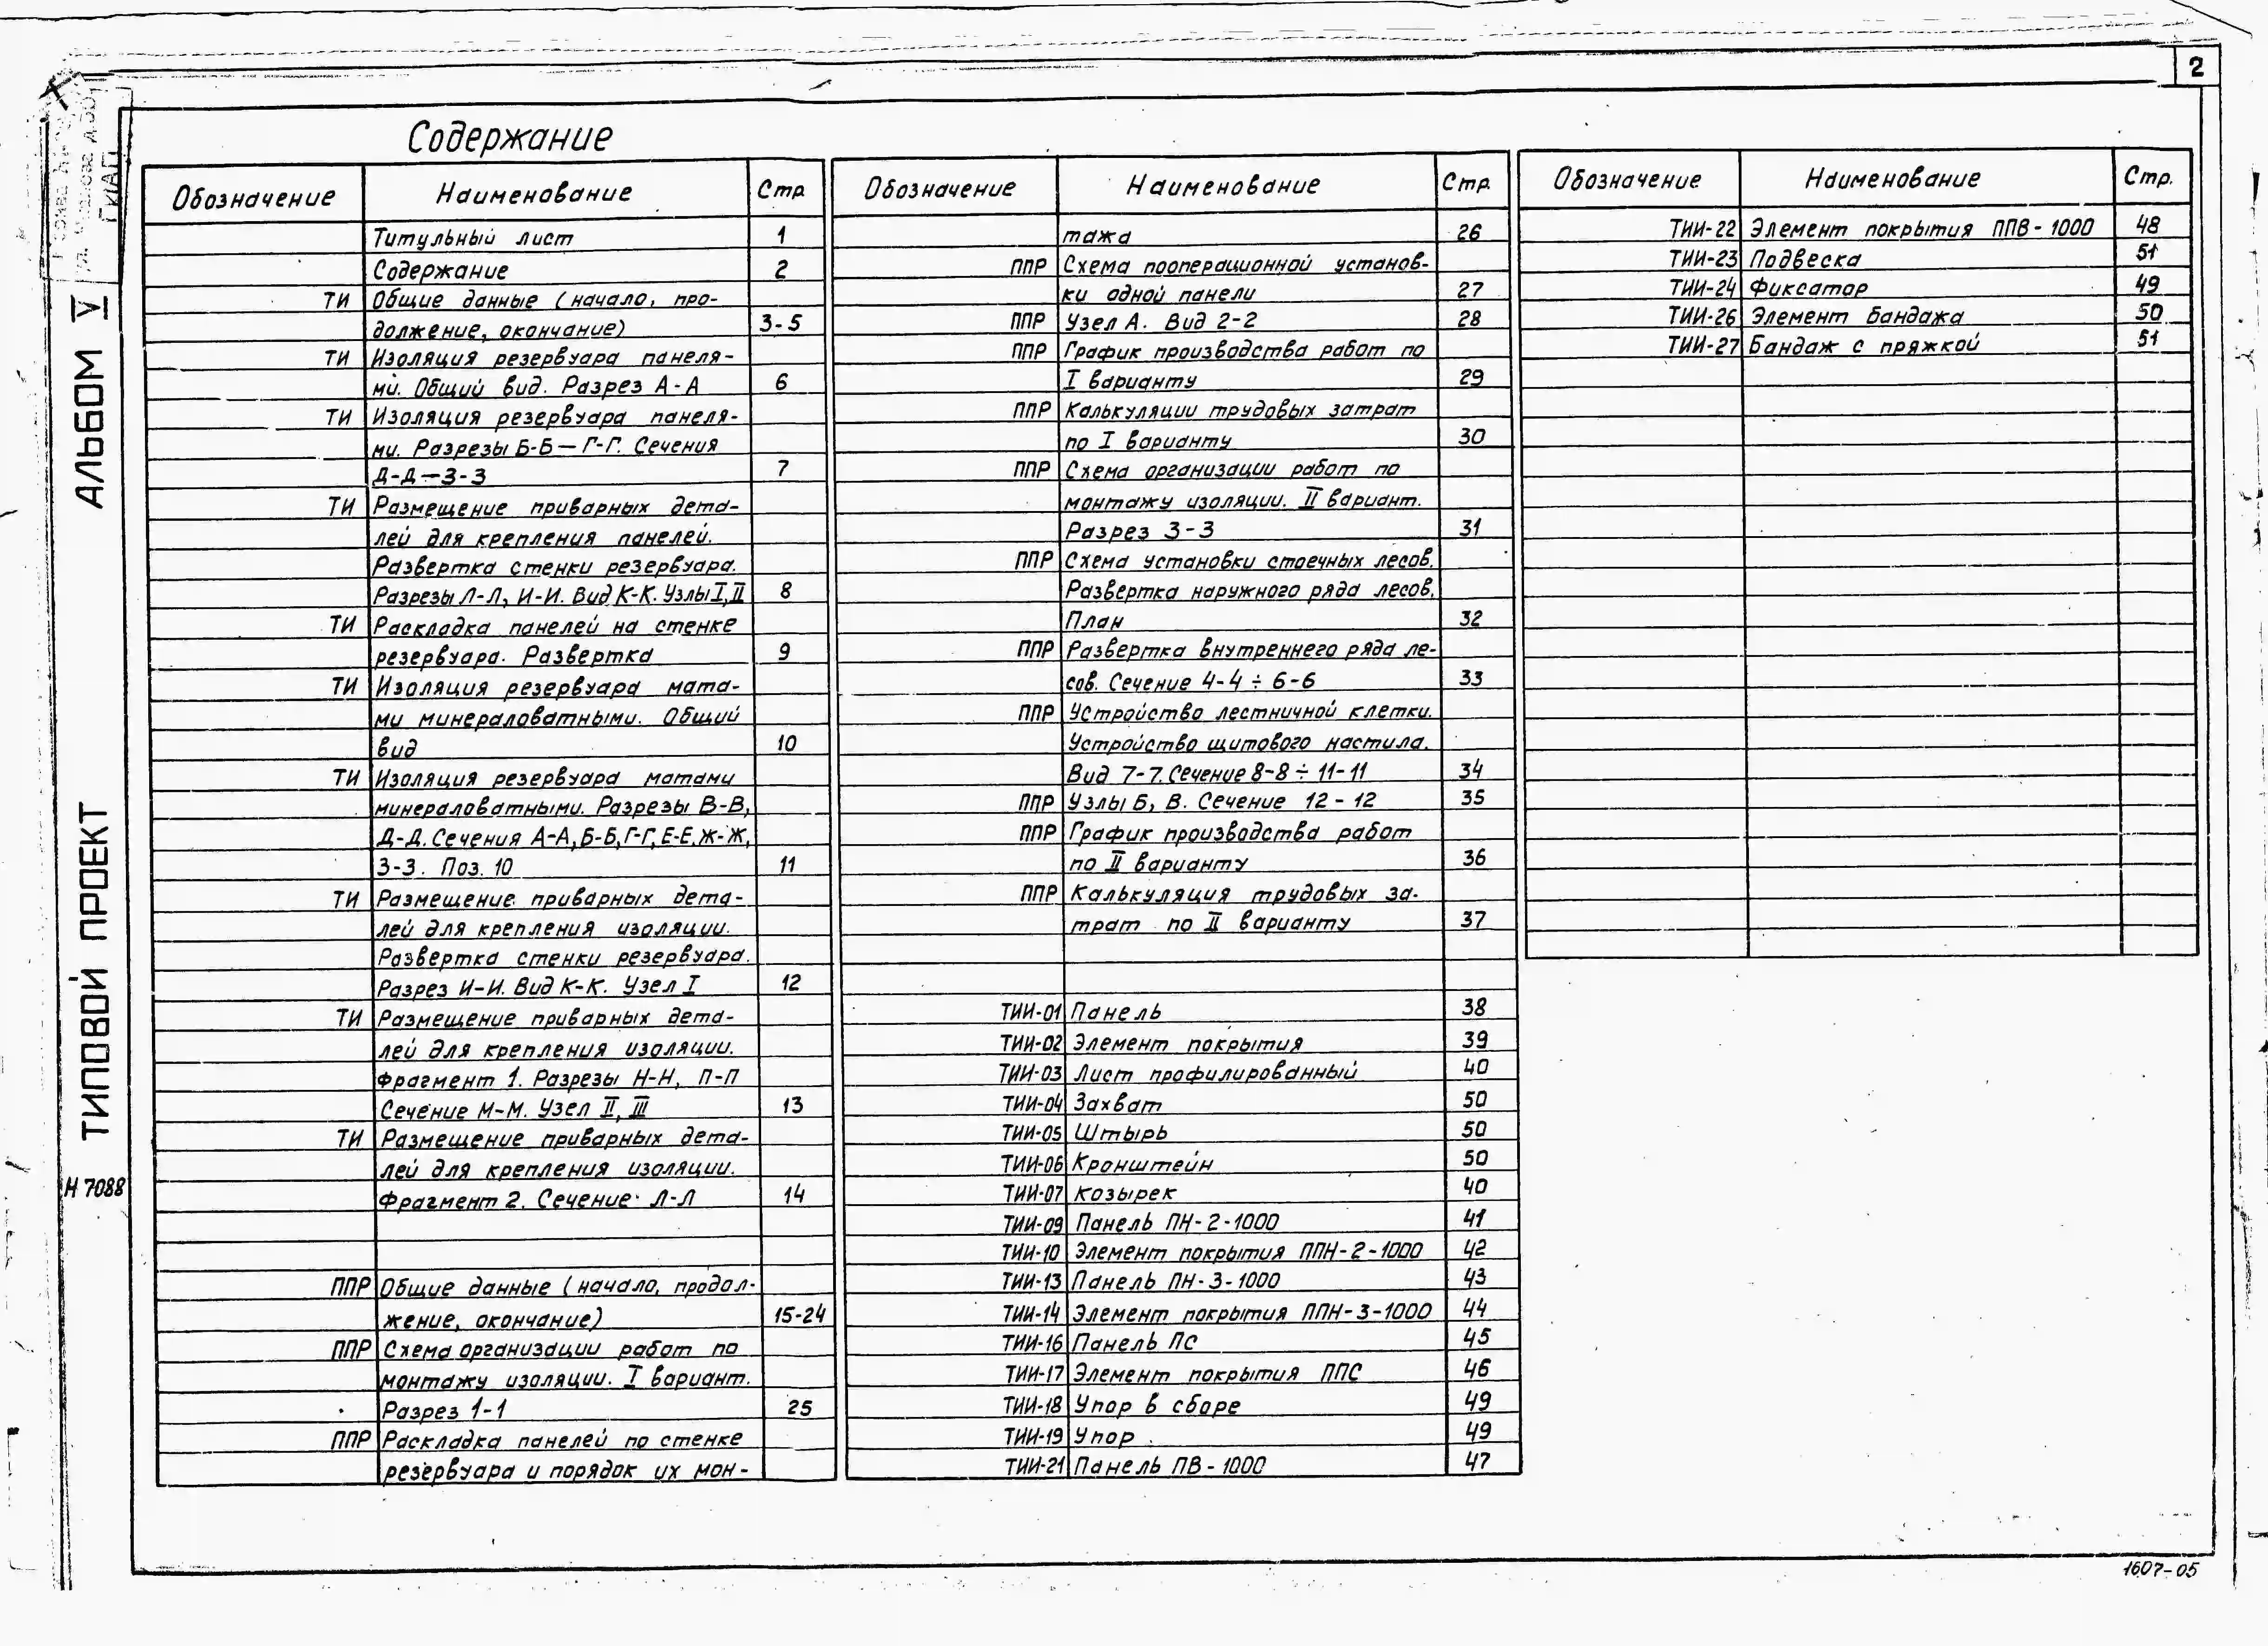 2
Содержание
Обозначение Наименование Стр.
Титульный лист 1
Содержание 2
ТИ Общие данные (начало, про-
должение, окончание) 3-5
ТИ Изоляция резервуара панеля-
ми. Общий вид. Разрез А-А 6
ТИ Изоляция резервуара панеля-
ми. Разрезы Б-Б — Г-Г. Сечения
Д-Д — З-З 7
ТИ Размещение приварных дета-
лей для крепления панелей.
Развертка стенки резервуара.
Разрезы Л-Л, И-И. Вид К-К. Узлы I, II 8
ТИ Раскладка панелей на стенке
резервуара. Развертка 9
ТИ Изоляция резервуара мата-
ми минераловатными. Общий
вид 10
ТИ Изоляция резервуара матами
минераловатными. Разрезы В-В,
Д-Д. Сечения А-А, Б-Б, Г-Г, Е-Е, Ж-Ж,
З-З. Поз. 10 11
ТИ Размещение приварных дета-
лей для крепления изоляции.
Развертка стенки резервуара.
Разрез И-И. Вид К-К. Узел I 12
ТИ Размещение приварных дета-
лей для крепления изоляции.
Фрагмент 1. Разрезы Н-Н, П-П
Сечение М-М. Узел II, III 13
ТИ Размещение приварных дета-
лей для крепления изоляции.
Фрагмент 2. Сечение Л-Л 14
ППР Общие данные (начало, продол-
жение, окончание) 15-24
ППР Схема организации работ по
монтажу изоляции. I вариант.
Разрез 1-1 25
ППР Раскладка панелей по стенке
резервуара и порядок их мон-
Обозначение Наименование Стр.
тажа 26
ППР Схема пооперационной установ-
ки одной панели 27
ППР Узел А. Вид 2-2 28
ППР График производства работ по
I варианту 29
ППР Калькуляции трудовых затрат
по I варианту 30
ППР Схема организации работ по
монтажу изоляции. II вариант.
Разрез 3-3 31
ППР Схема установки стоечных лесов.
Развертка наружного ряда лесов.
План 32
ППР Развертка внутреннего ряда ле-
сов. Сечение 4-4 ÷ 6-6 33
ППР Устройство лестничной клетки.
Устройство щитового настила.
Вид 7-7. Сечение 8-8 ÷ 11-11 34
ППР Узлы Б, В. Сечение 12-12 35
ППР График производства работ
по II варианту 36
ППР Калькуляция трудовых за-
трат по II варианту 37
ТИИ-01 Панель 38
ТИИ-02 Элемент покрытия 39
ТИИ-03 Лист профилированный 40
ТИИ-04 Захват 50
ТИИ-05 Штырь 50
ТИИ-06 Кронштейн 50
ТИИ-07 Козырек 40
ТИИ-09 Панель ПН-2-1000 41
ТИИ-10 Элемент покрытия ППН-2-1000 42
ТИИ-13 Панель ПН-3-1000 43
ТИИ-14 Элемент покрытия ППН-3-1000 44
ТИИ-16 Панель ПС 45
ТИИ-17 Элемент покрытия ППС 46
ТИИ-18 Упор в сборе 49
ТИИ-19 Упор 49
ТИИ-21 Панель ПВ-1000 47
Обозначение Наименование Стр.
ТИИ-22 Элемент покрытия ППВ-1000 48
ТИИ-23 Подвеска 51
ТИИ-24 Фиксатор 49
ТИИ-26 Элемент бандажа 50
ТИИ-27 Бандаж с пряжкой 51
ТИПОВОЙ ПРОЕКТ АЛЬБОМ V
Н 7088
1607-05